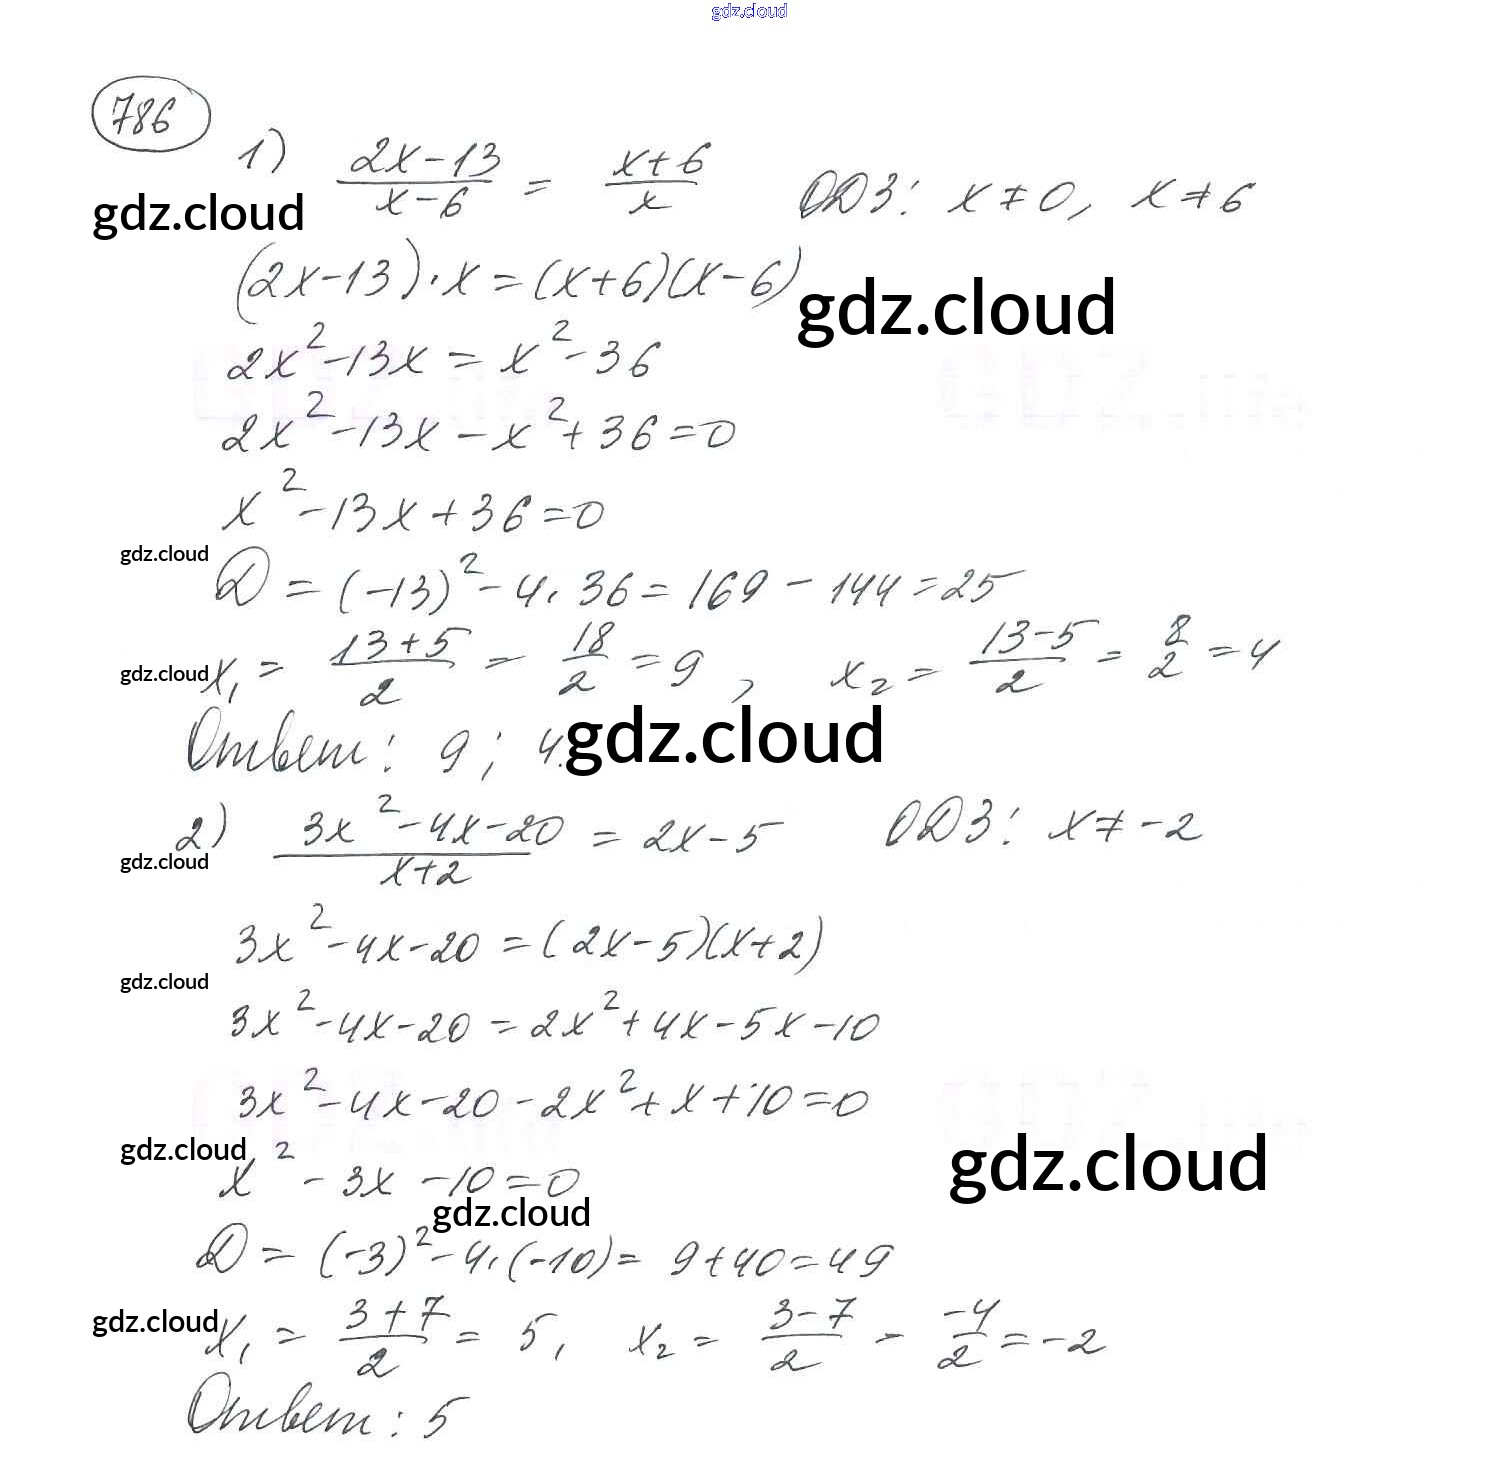 gdz.cloud
786
1) (2x-13)/(x-6) = (x+6)/x ОДЗ: x≠0, x≠6
gdz.cloud
(2x-13)·x=(x+6)(x-6)
gdz.cloud
2x²-13x=x²-36
GDZ.life GDZ.life
2x²-13x-x²+36=0
x²-13x+36=0
gdz.cloud
D=(-13)²-4·36=169-144=25
gdz.cloud
x₁=(13+5)/2=18/2=9, x₂=(13-5)/2=8/2=4
Ответ: 9; 4.
gdz.cloud
2) (3x²-4x-20)/(x+2)=2x-5 ОДЗ: x≠-2
gdz.cloud
3x²-4x-20=(2x-5)(x+2)
gdz.cloud
3x²-4x-20=2x²+4x-5x-10
3x²-4x-20-2x²+x+10=0
GDZ.life GDZ.life
gdz.cloud
x²-3x-10=0
gdz.cloud
gdz.cloud
D=(-3)²-4·(-10)=9+40=49
gdz.cloud
x₁=(3+7)/2=5, x₂=(3-7)/2-(-4)/2=-2
Ответ: 5